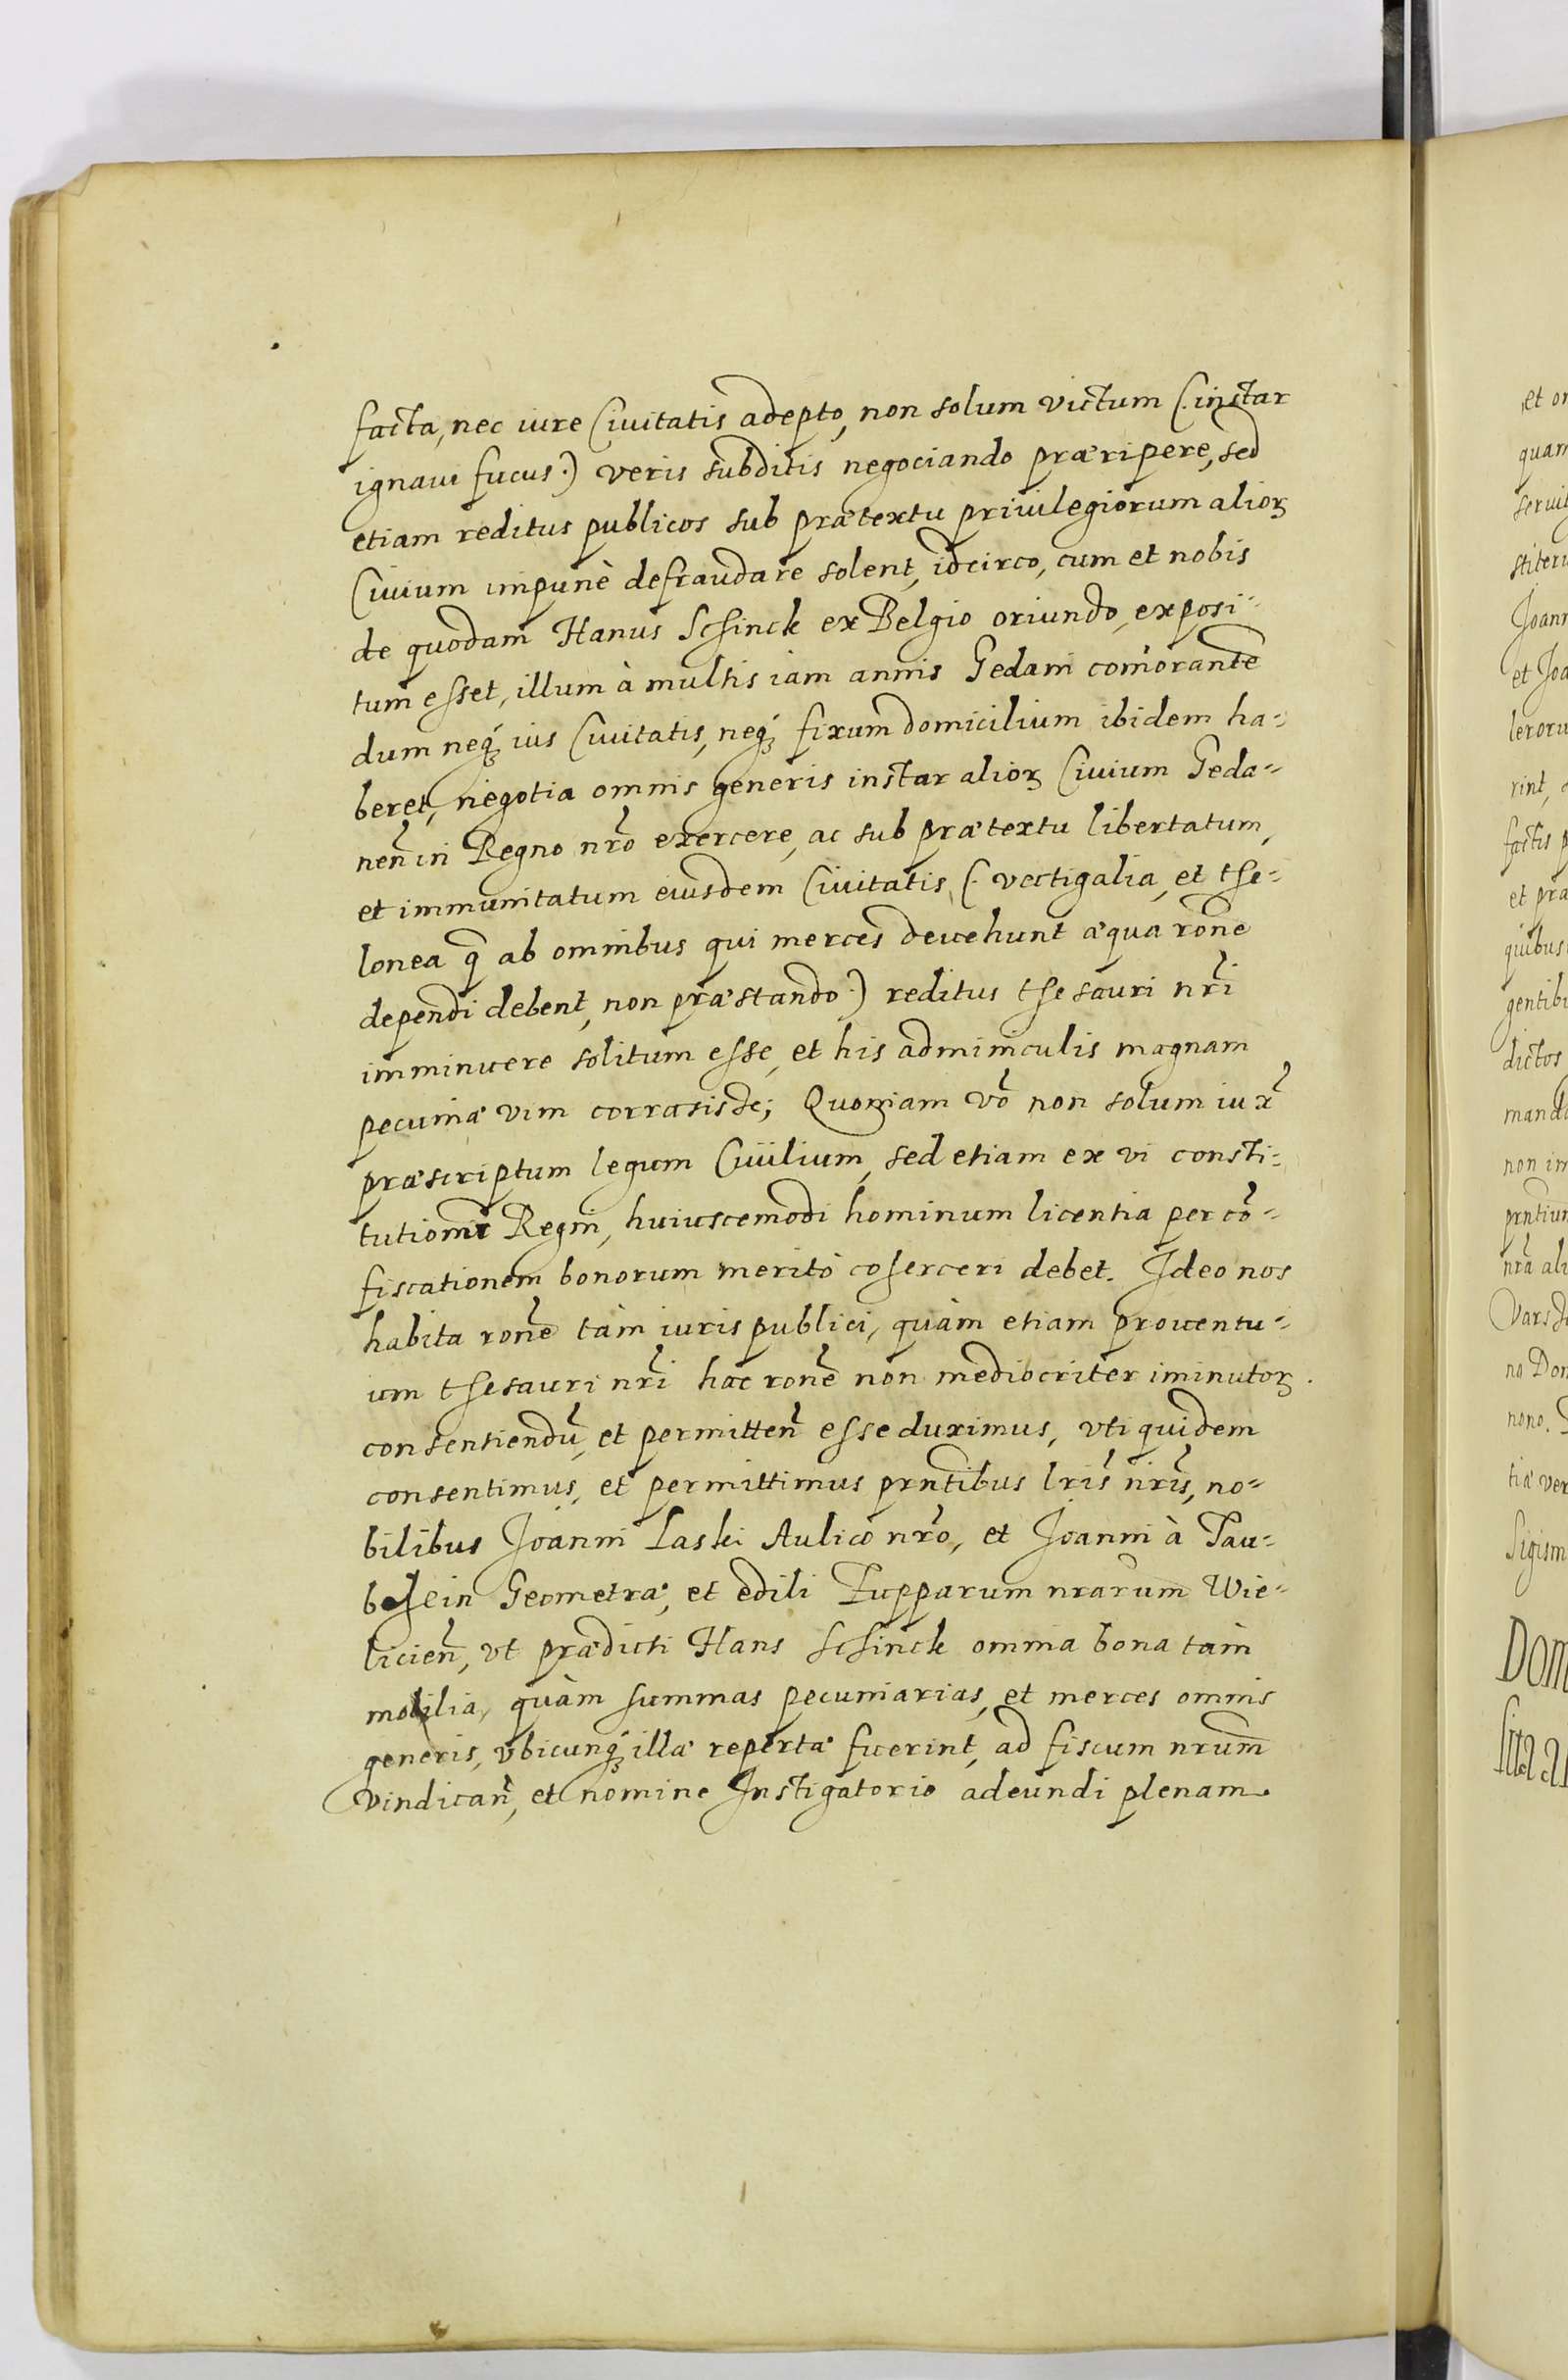 facta, nec iure Ciuitatis adepto, non solum victum (. instar
ignaui fucus .) veris subditis negociando præripere, sed
etiam reditus publicos sub prætextu priuilegiorum alioꝝ
Ciuium impunè defraudare solent, idcirco, cum et nobis
de quodam Hanus Schinck ex Belgio oriundo, exposi-
tum esset, illum à multis iam annis Gedani com̃orante
dum neqꝫ ius Ciuitatis, neqꝫ fixum domicilium ibidem ha-
beret, negotia omnis generis instar alioꝝ Ciuium Geda-
nen̄ in Regno nr̃o exercere, ac sub prætextu libertatum,
et immunitatum eiusdem Ciuitatis (. vectigalia, et the-
lonea q̃ ab omnibus qui merces deuehunt æqua rõne
dependi debent, non præstando .) reditus thesauri nr̃i
imminuere solitum esse, et his adminiculis magnam
pecuniæ vim corrasisse; Quoniam võ non solum iux̃
præscriptum legum Ciuilium, sed etiam ex vi consti-
tutionũ Regni, huiuscemodi hominum licentia per cõ-
fiscationem bonorum meritò coherceri debet. Ideo nos
habita rone̅ tàm iuris publici, quàm etiam prouentu-
um thesauri nr̃i hac rone̅ non mediocriter iminutoꝝ
consentiendũ, et permitten̄ esse duximus, vti quidem
consentimus, et permittimus prntibus lris̃ nris̃, no-
bilibus Joanni Laski Aulico nr̃o, et Joanni à Tau-
bhein Geometræ, et edili Zupparum nrarum Wie-
licien̄, vt prædicti Hans Schinck omnia bona tam
mobilia, quàm summas pecuniarias, et merces omnis
generis, vbicunqꝫ illæ repertæ fuerint, ad fiscum nrum̃
vindican̄, et nomine Instigatorio adeundi plenam
et or
quam
seruit
stiteru
Joann
et Joa
leroru
rint,
factis p
et pra
quibus
gentibu
dictos
mand
non im
prntium
nrã ali
Vars
no Dom
nono.
tiæ ver
Sigism
Dom